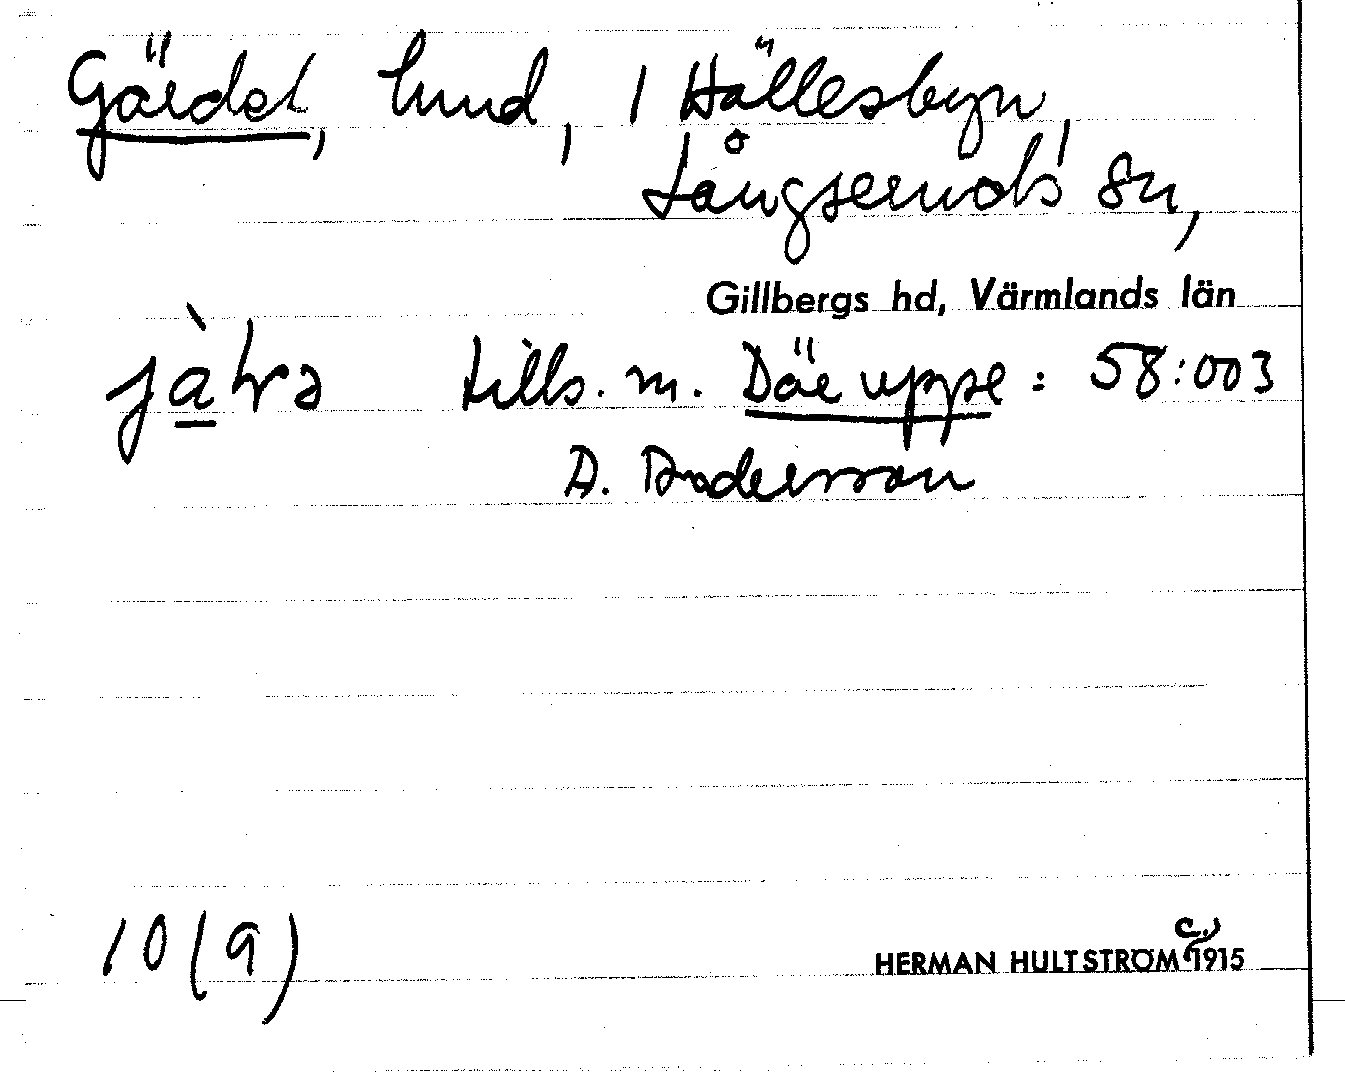 Gärdet, lund, 1 Hällesbyn,
Långseruds sn,
Gillbergs hd, Värmlands län
jàtrə tills. m. Där uppe : 58:003
A. Andersson
10 (9) HERMAN HULTSTRÖM c. 1915